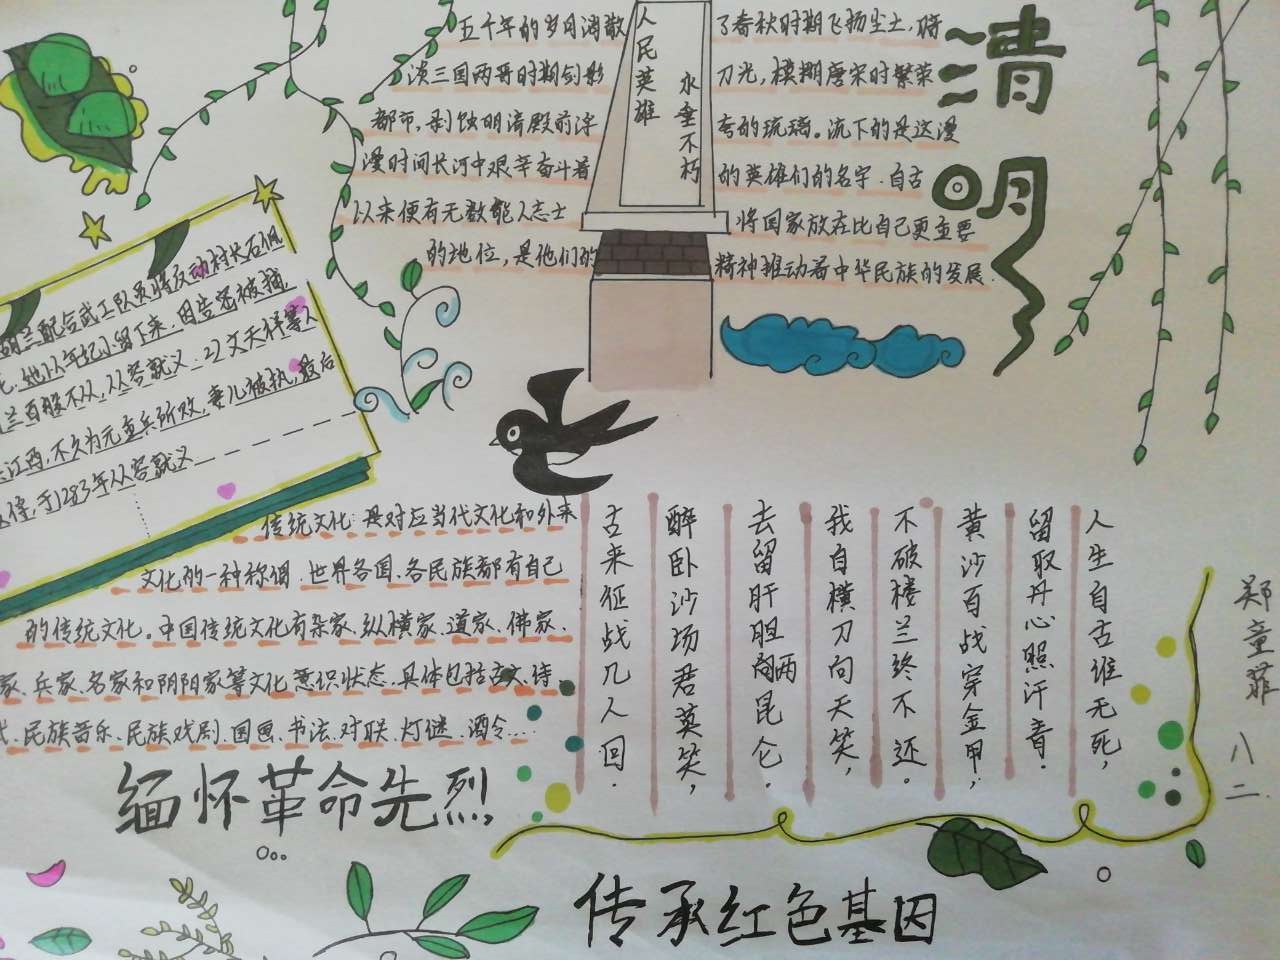 清明
人民英雄
永垂不朽
五千年的岁月消散了春秋时期飞扬尘土，暗
淡三国两晋时期剑影刀光，模糊唐宋时繁荣
都市，剥蚀明清殿前浮夸的琉璃。流下的是这漫
漫时间长河中艰辛奋斗着的英雄们的名字．自古
以来便有无数能人志士将国家放在比自己更重要
的地位，是他们的精神推动着中华民族的发展．
兰配合武工队员将反动村长石佩
她以年纪小留下来．因告密被捕
兰百般不从，从容就义．2〉文天祥等人
江西，不久为元重兵所败，妻儿被执，最后
于1283年从容就义
传统文化：是对应当代文化和外来
文化的一种称谓．世界各国、各民族都有自己
的传统文化。中国传统文化有杂家、纵横家、道家、佛家、
家、兵家、名家和阴阳家等文化意识状态．具体包括古文、诗、
民族音乐、民族戏剧、国画、书法、对联、灯谜、酒令....
人生自古谁无死，
留取丹心照汗青．
黄沙百战穿金甲，
不破楼兰终不还．
我自横刀向天笑，
去留肝胆两昆仑．
醉卧沙场君莫笑，
古来征战几人回．
郑童菲
八二．
缅怀革命先烈
传承红色基因